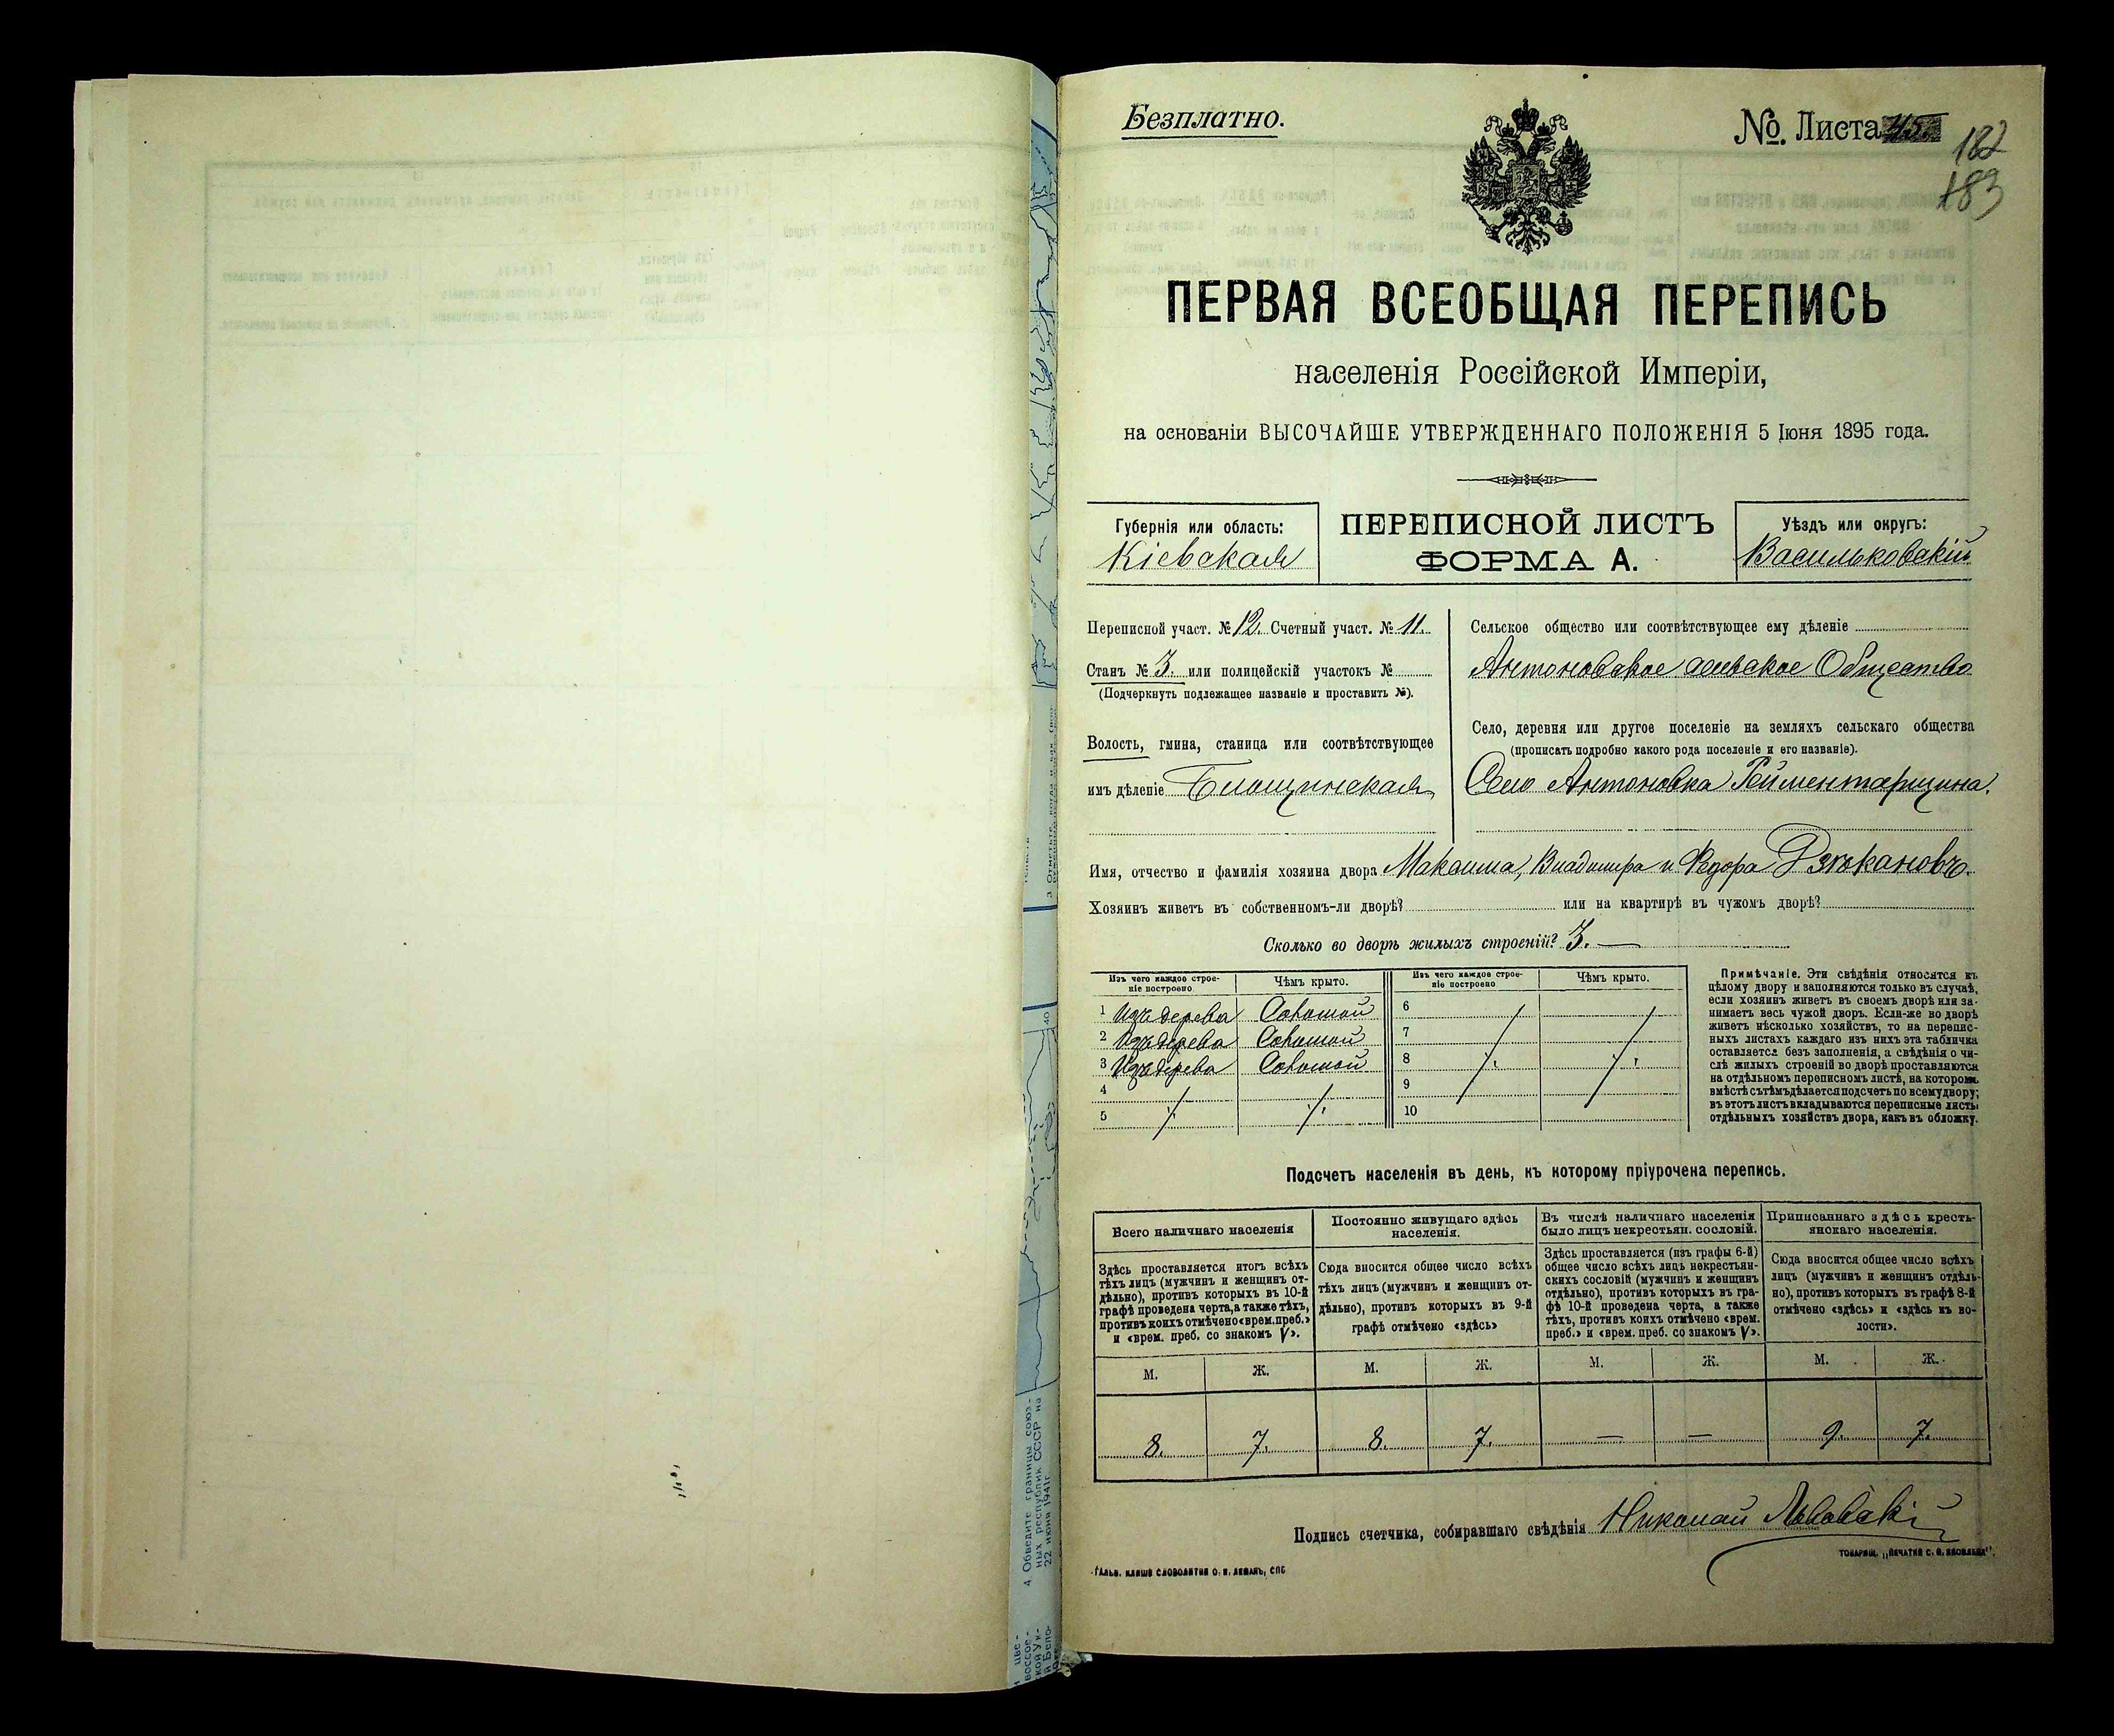 Безплатно.
№ Листа 45.
182
183
ПЕРВАЯ ВСЕОБЩАЯ ПЕРЕПИСЬ
населенія Россійской Имперіи,
на основаніи ВЫСОЧАЙШЕ УТВЕРЖДЕННАГО ПОЛОЖЕНІЯ 5 Іюня 1895 года.
Губернія или область:
Кіевская
ПЕРЕПИСНОЙ ЛИСТЪ
ФОРМА А.
Уѣздъ или округъ:
Васильковскій
Переписной участ. № 12. Счетный участ. № 11.
Станъ № 3. или полицейскій участокъ №
(Подчеркнуть подлежащее названіе и проставить №).
Волость, гмина, станица или соотвѣтствующее
имъ дѣленіе
Сельское общество или соотвѣтствующее ему дѣленіе
Антоновское сельское Общество
Село, деревня или другое поселеніе на земляхъ сельскаго общества
(прописать подробно какого рода поселеніе и его названіе).
Село Антоновка Рейментарщина.
Имя, отчество и фамилія хозяина двора Максима, Владимира и Федора
Хозяинъ живетъ въ собственномъ-ли дворѣ? или на квартирѣ въ чужомъ дворѣ?
Сколько во дворѣ жилыхъ строеній? 3. —
Изъ чего каждое строе-
ніе построено
Чѣмъ крыто.
Изъ чего каждое строе-
ніе построено
Чѣмъ крыто.
1 Изъ дерева Соломой 6
2 Изъ дерева Соломой 7
3 Изъ дерева Соломой 8
4 9
5 10
Примѣчаніе. Эти свѣдѣнія относятся къ
цѣлому двору и заполняются только въ случаѣ,
если хозяинъ живетъ въ своемъ дворѣ или за-
нимаетъ весь чужой дворъ. Если-же во дворѣ
живетъ нѣсколько хозяйствъ, то на перепис-
ныхъ листахъ каждаго изъ нихъ эта табличка
оставляется безъ заполненія, а свѣдѣнія о чи-
слѣ жилыхъ строеній во дворѣ проставляются
на отдѣльномъ переписномъ листѣ, на которомъ
вмѣстѣ съ тѣмъ дѣлается подсчетъ по всему двору;
въ этотъ листъ вкладываются переписные листы
отдѣльныхъ хозяйствъ двора, какъ въ обложку.
Подсчетъ населенія въ день, къ которому пріурочена перепись.
Всего наличнаго населенія
Здѣсь проставляется итогъ всѣхъ
тѣхъ лицъ (мужчинъ и женщинъ от-
дѣльно), противъ которыхъ въ 10-й
графѣ проведена черта, а также тѣхъ,
противъ коихъ отмѣчено «врем. преб.»
и «врем. преб. со знакомъ V».
Постоянно живущаго здѣсь
населенія.
Сюда вносится общее число всѣхъ
тѣхъ лицъ (мужчинъ и женщинъ от-
дѣльно), противъ которыхъ въ 9-й
графѣ отмѣчено «здѣсь»
Въ числѣ наличнаго населенія
было лицъ некрестьян. сословій.
Здѣсь проставляется (изъ графы 6-й)
общее число всѣхъ лицъ некрестьян-
скихъ сословій (мужчинъ и женщинъ
отдѣльно), противъ которыхъ въ гра-
фѣ 10-й проведена черта, а также
тѣхъ, противъ коихъ отмѣчено «врем.
преб.» и «врем. преб. со знакомъ V».
Приписаннаго здѣсь кресть-
янскаго населенія.
Сюда вносится общее число всѣхъ
лицъ (мужчинъ и женщинъ отдѣль-
но), противъ которыхъ въ графѣ 8-й
отмѣчено «здѣсь» и «здѣсь въ во-
лости».
М. Ж. М. Ж. М. Ж. М. Ж.
8. 7. 8. 7. — — 9. 7.
Подпись счетчика, собиравшаго свѣдѣнія Николай Львовскій
Гальв. клише словолитни О. И. Леманъ, СПБ
Товарищ. „Печатня С. П. Яковлева“.
4. Обведите границы союз-
ных республик СССР на
22 июня 1941г